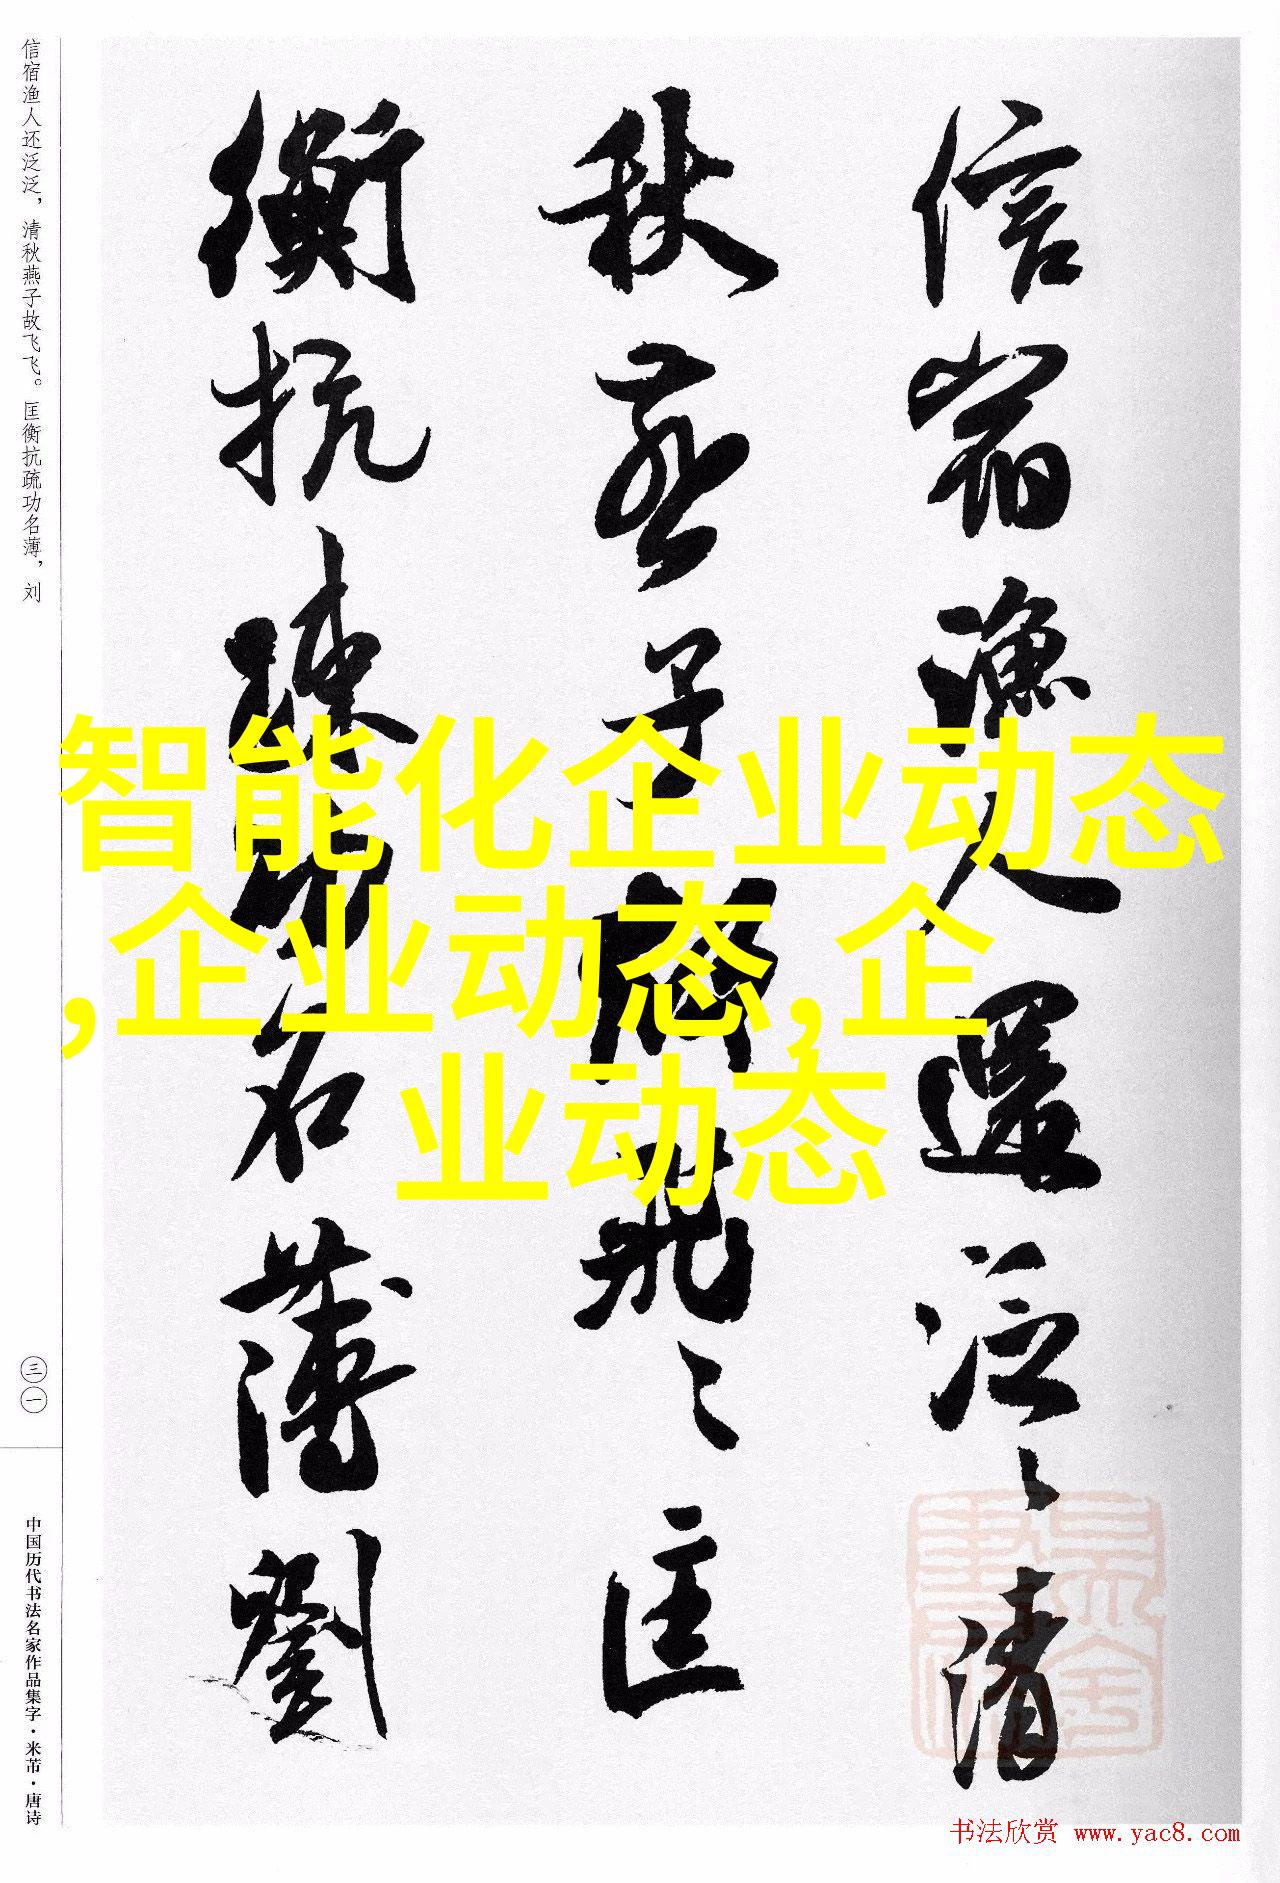 信宿渔人还泛泛，清秋燕子故飞飞。匡衡抗疏功名薄，刘
三一
中国历代书法名家作品集字·米芾·唐诗
信宿漁人還泛〻清
秋燕子故飛〻匡
衡抗疏功名薄劉
智能化企业动态
,企业动态,企
业动态
书法欣赏 www.yac8.com